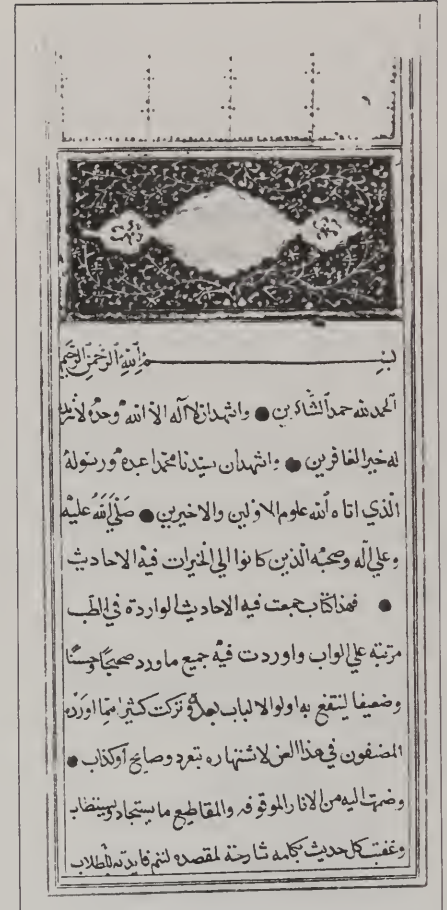 بسم الله الرحمن الرحيم
الحمد لله حمد الشاكرين واشهد ان لا اله الا الله وحده لا شريك
له خير الغافرين واشهد ان سيدنا محمدا عبده ورسوله
الذي اتاه الله علوم الاولين والاخيرين صلى الله عليه
وعلي اله وصحبه الذين كانوا الي الخيرات فيه الاحاديث
فهذا كتاب جمعت فيه الاحاديث الواردة في الطب
مرتبته علي الواب واوردت فيه جميع ما ورد صحيحا وحسنا
وضعيفا لينتفع به اولوا الالباب وتركت كثيرا مما اورده
المصنفون في هذا الفن لاشتهاره بتفرد وضاع او كذاب
وضمت اليه من الاثار الموقوفه والمقاطيع ما يستجاد
وعقبت كل حديث بكلمه شارحة لمقصده لتتم فايدته للطلاب